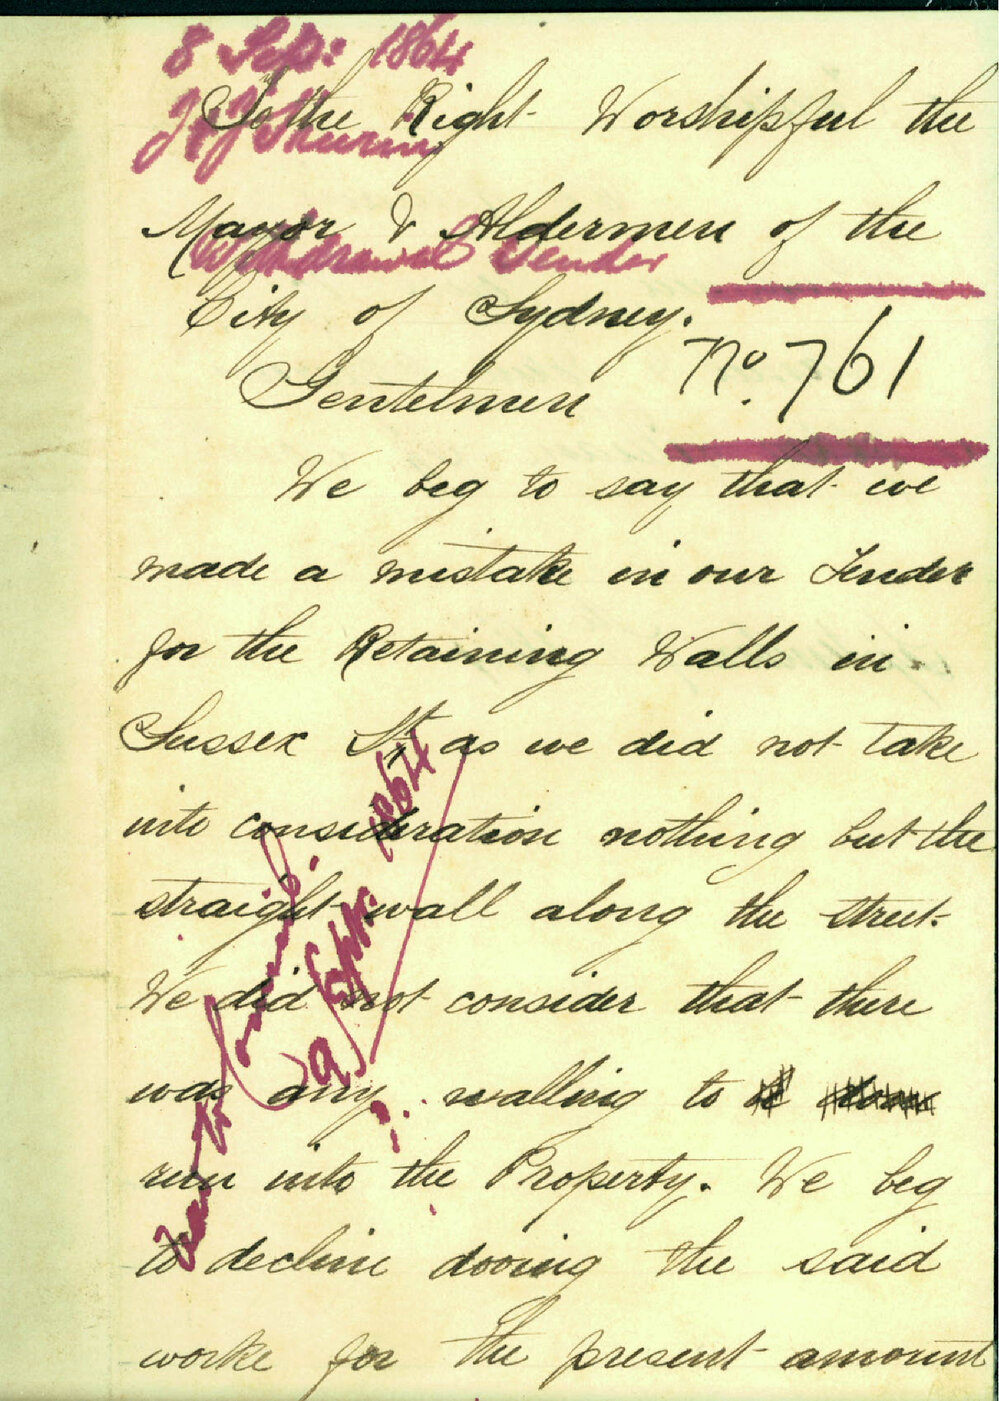 8 Sep: 1864
To the Right Worshipful the
Mayor & Aldermen of the
Withdrawal Tender
City of Sydney.
No. 761
Gentelmen
We beg to say that we
made a mistake in our Tender
for the Retaining Walls in
Sussex St, as we did not take
into consideration nothing but the
straight wall along the street.
We did not consider that there
was any walling to
run into the Property. We beg
to decline dooing the said
worke for the present amount
9 Sept. 1864